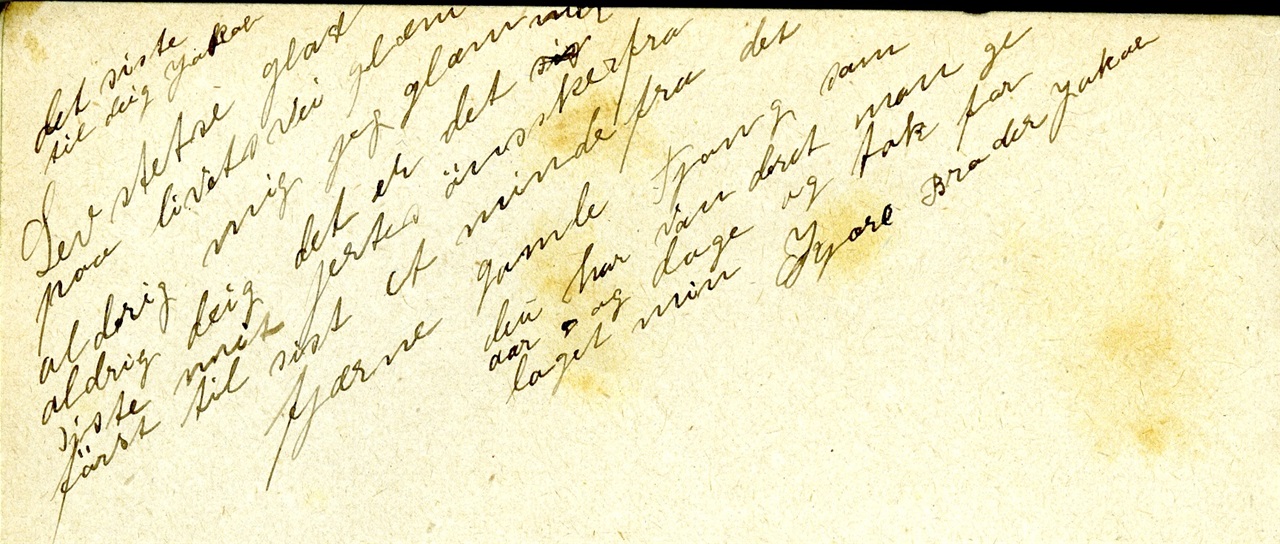 det siste
til deig yakoer
Lev stetse glad
paa livets vei glem
aldrig mig jeg glemmer
aldrig deig det er det
siste mit jertes önsker fra
först til sist et minde fra det
fjærne gamle Tjong som
du har vän deret man ge
aar og dage og tak for
laget min Kjære Broder yakoer